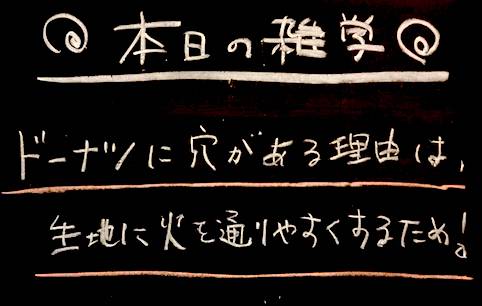 本日の雑学
ドーナツに穴がある理由は、
生地に火を通りやすくするため!